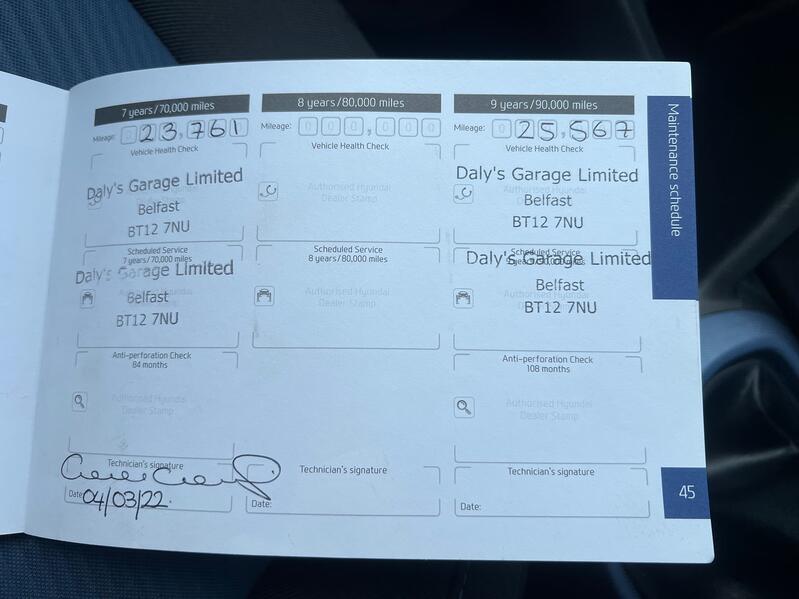 7 years/70,000 miles
Mileage: 0 2 3 , 7 6 1
Vehicle Health Check
Daly's Garage Limited
Belfast
BT12 7NU
Scheduled Service
7 years/70,000 miles
Daly's Garage Limited
Belfast
BT12 7NU
Anti-perforation Check
84 months
Authorised Hyundai
Dealer Stamp
Technician's signature
Date: 04/03/22.
8 years/80,000 miles
Mileage: 0 0 0 , 0 0 0
Vehicle Health Check
Authorised Hyundai
Dealer Stamp
Scheduled Service
8 years/80,000 miles
Authorised Hyundai
Dealer Stamp
Technician's signature
Date:
9 years/90,000 miles
Mileage: 0 2 5 , 5 6 7
Vehicle Health Check
Daly's Garage Limited
Belfast
BT12 7NU
Scheduled Service
9 years/90,000 miles
Daly's Garage Limited
Belfast
BT12 7NU
Anti-perforation Check
108 months
Authorised Hyundai
Dealer Stamp
Technician's signature
Date:
Maintenance schedule
45